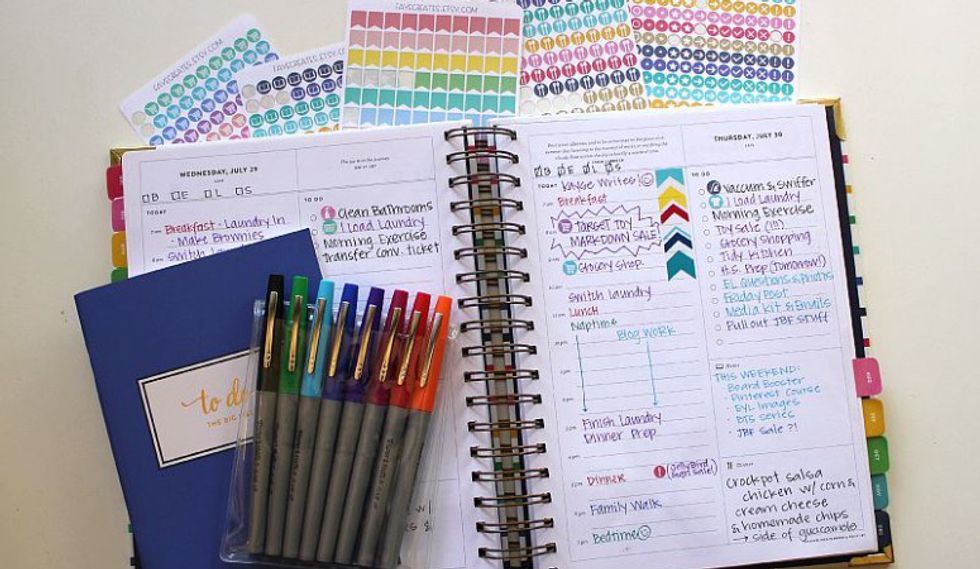 FAYECREATES.ETSY.COM
FAYECREATES.ETSY.COM
FAYECREATES.ETSY.COM
WEDNESDAY, JULY 29
B E L S
TODAY
Breakfast · Laundry In
· Make Brownies
Switch
TO DO
Clean Bathrooms
1 Load Laundry
Morning Exercise
Transfer Conv. ticket
to do
THE BIG
B E L S
TODAY
Kayse Writes!
Breakfast
TARGET TOY
MARKDOWN SALE!
Grocery Shop
Switch laundry
Lunch
Naptime
Blog WORK
Finish laundry
Dinner Prep
Dinner
Family Walk
Bedtime
THURSDAY, JULY 30
TO DO
Vaccum & Swiffer
1 Load Laundry
Morning Exercise
Toy Sale (!!!)
Grocery Shopping
Tidy Kitchen
H.S. Prep (Tomorrow!)
EL Questions & Photos
Friday Post
Media Kit & Emails
Pull out JBF Stuff
THIS WEEKEND:
- Board Booster
- Pinterest Course
- EYL Images
- BTS Series
- JBF Sale ?!
Dinner
Crockpot salsa
chicken w/ corn &
cream cheese
& homemade chips
→ side of guacamole
AUG
SEP
OCT
NOV